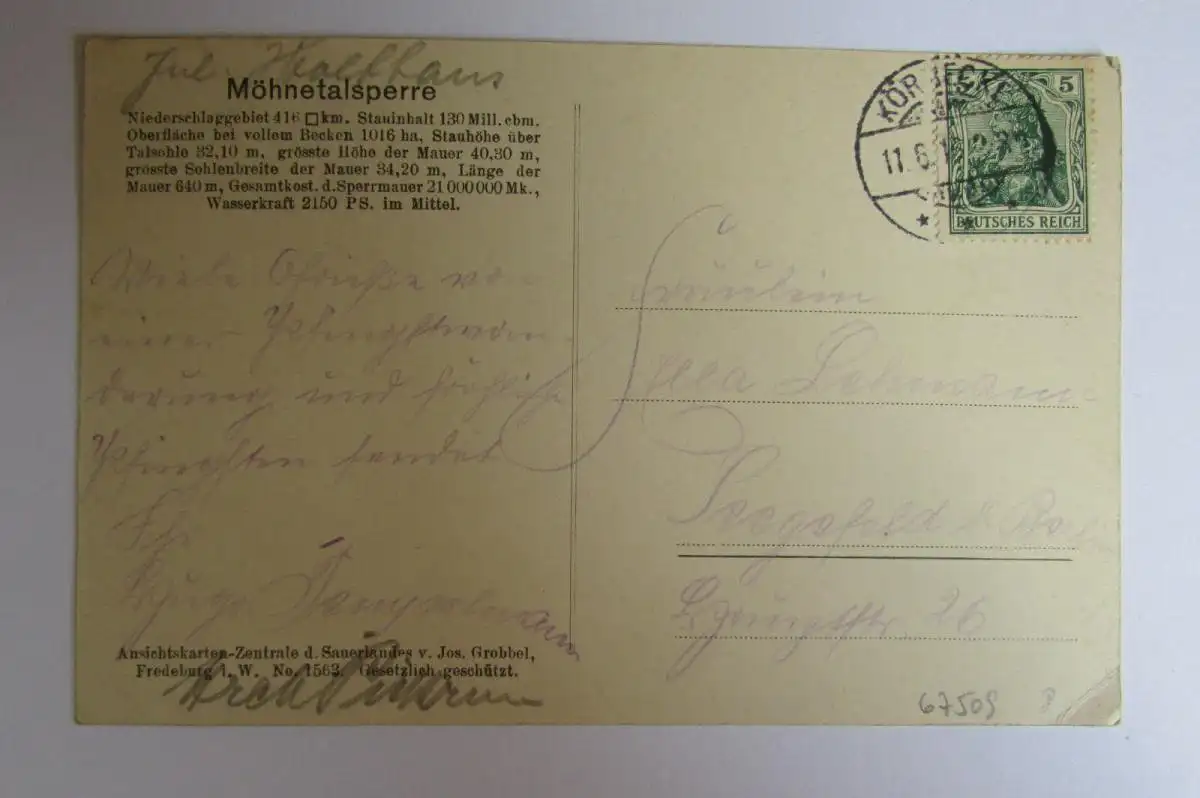 Jul.
Möhnetalsperre
Niederschlaggebiet 416 □km. Stauinhalt 130 Mill. cbm.
Oberfläche bei vollem Becken 1016 ha, Stauhöhe über
Talsohle 32,10 m, grösste Höhe der Mauer 40,30 m,
grösste Sohlenbreite der Mauer 34,20 m, Länge der
Mauer 640 m, Gesamtkost. d. Sperrmauer 21 000 000 Mk.,
Wasserkraft 2150 PS. im Mittel.
Viele Grüße von
einer Pfingstwan
derung und fröhliche
Pfingsten sendet
Hugo
Ansichtskarten-Zentrale d. Sauerlandes v. Jos. Grobbel,
Fredeburg i. W. No. 1563. Gesetzlich geschützt.
KÖRBECKE
11.6.1
5
DEUTSCHES REICH
Fräulein
Ella
Hauptstr. 26
67509